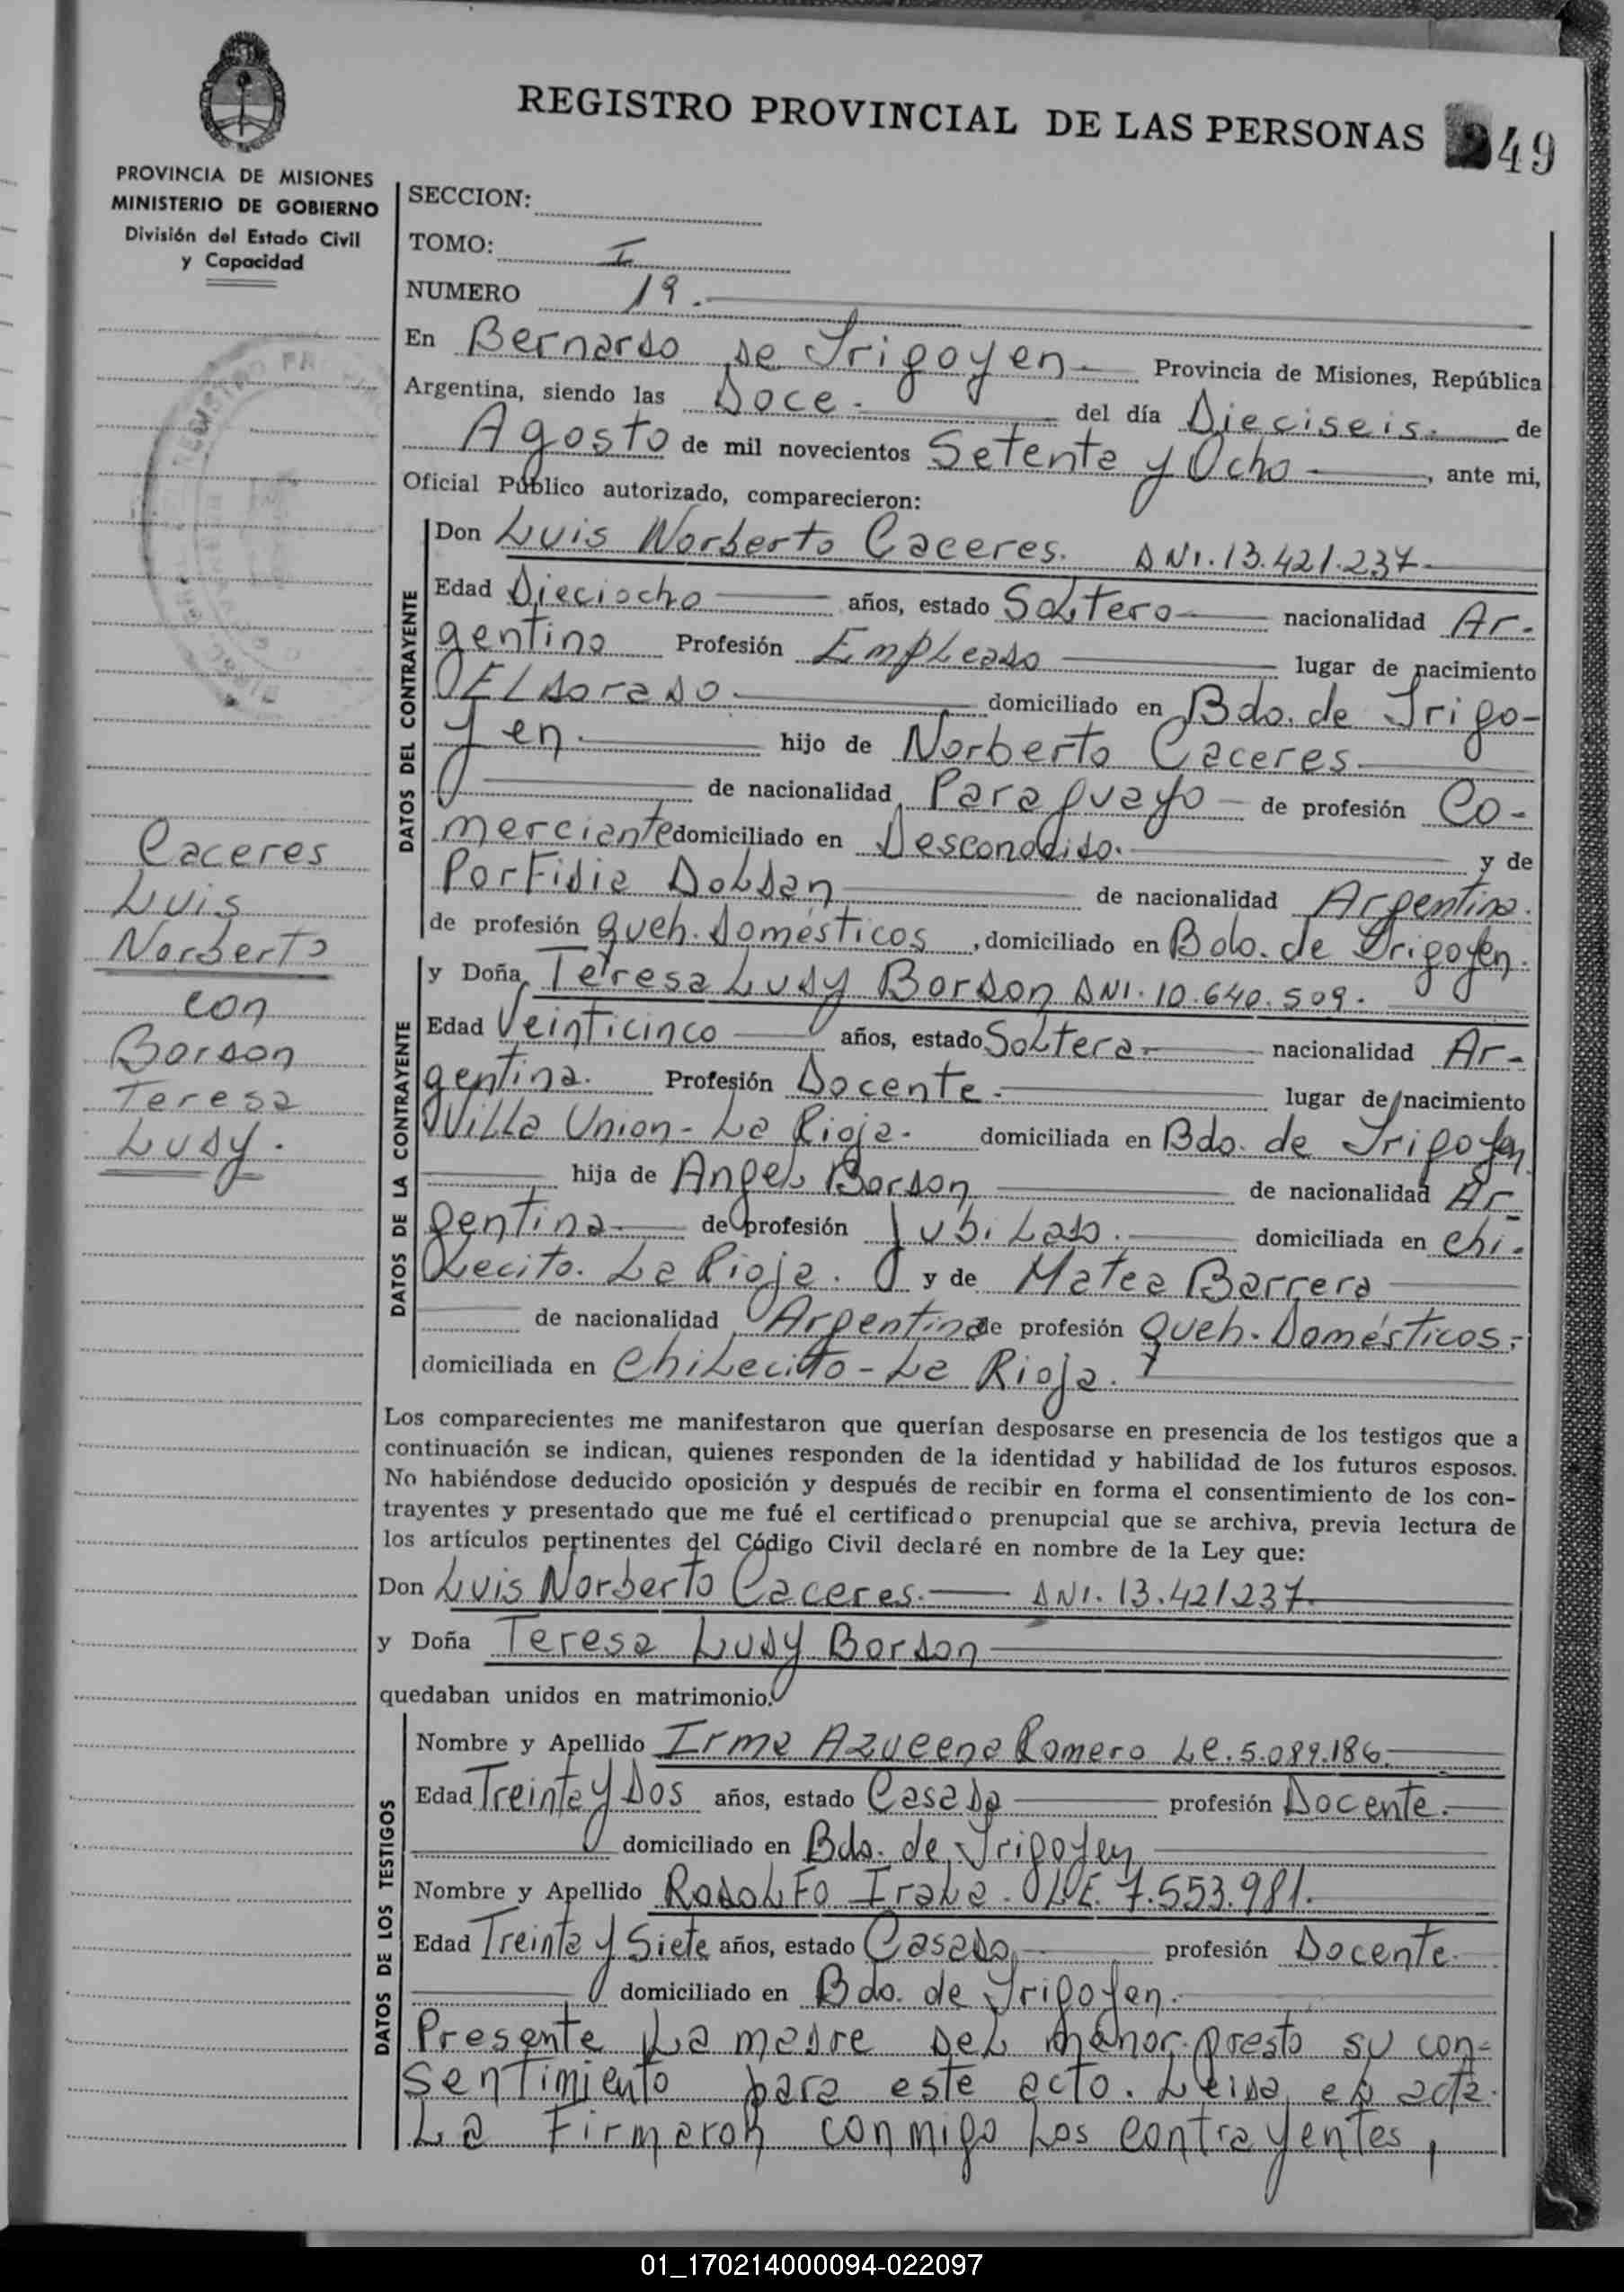 REGISTRO PROVINCIAL DE LAS PERSONAS 249
PROVINCIA DE MISIONES
MINISTERIO DE GOBIERNO
División del Estado Civil
y Capacidad
SECCION:
TOMO: I
NUMERO 19.
En Bernardo de Irigoyen Provincia de Misiones, República
Argentina, siendo las Doce. del día Dieciseis. de
Agosto de mil novecientos Setenta y Ocho, ante mi,
Oficial Público autorizado, comparecieron:
DATOS DEL CONTRAYENTE
Don Luis Norberto Caceres. DNI. 13.421.237
Edad Dieciocho años, estado Soltero nacionalidad Ar-
gentino Profesión Empleado lugar de nacimiento
ELdorado. domiciliado en Bdo. de Irigo-
yen. hijo de Norberto Caceres.
de nacionalidad Paraguayo de profesión Co-
merciante domiciliado en Desconocido. y de
Porfidia Doldan de nacionalidad Argentina.
de profesión Queh. Domésticos, domiciliado en Bdo. de Irigoyen.
DATOS DE LA CONTRAYENTE
y Doña Teresa Ludy Bordon DNI. 10.640.509.
Edad Veinticinco años, estado Soltera. nacionalidad Ar-
gentina. Profesión Docente. lugar de nacimiento
Villa Union - La Rioja. domiciliada en Bdo. de Irigoyen
hija de Angel Bordon de nacionalidad Ar-
gentina de profesión Jubilado. domiciliada en Chi-
lecito. La Rioja. y de Matea Barrera
de nacionalidad Argentina de profesión Queh. Domésticos,
domiciliada en Chilecito - La Rioja.
Los comparecientes me manifestaron que querían desposarse en presencia de los testigos que a
continuación se indican, quienes responden de la identidad y habilidad de los futuros esposos.
No habiéndose deducido oposición y después de recibir en forma el consentimiento de los con-
trayentes y presentado que me fué el certificado prenupcial que se archiva, previa lectura de
los artículos pertinentes del Código Civil declaré en nombre de la Ley que:
Don Luis Norberto Caceres. DNI. 13.421237
y Doña Teresa Ludy Bordon
quedaban unidos en matrimonio.
DATOS DE LOS TESTIGOS
Nombre y Apellido Irma Azucena Romero Le. 5.089.186
Edad Treinta y Dos años, estado Casada profesión Docente.
domiciliado en Bdo. de Irigoyen
Nombre y Apellido Rodolfo Irala. L.E. 7.553.981.
Edad Treinta y Siete años, estado Casado profesión Docente.
domiciliado en Bdo. de Irigoyen.
Presente La madre del menor. presto su con-
sentimiento para este acto. Leida el acta.
La Firmaron conmigo Los contrayentes,
Caceres
Luis
Norberto
con
Bordon
Teresa
Ludy.
01_170214000094-022097